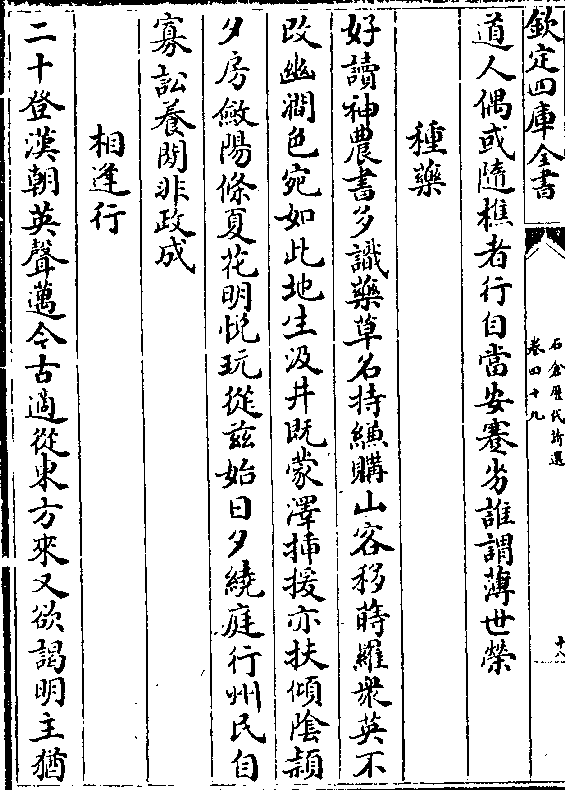 欽定四庫全書
石倉歷代詩選
卷四十九
十八
道人偶或隨樵者行自當安蹇劣誰謂薄世榮
種藥
好讀神農書多識藥草名持縑購山客移蒔羅衆英不
改幽澗色宛如此地生汲井既蒙澤揷援亦扶傾陰頴
夕房斂陽條夏花明悅玩從兹始日夕繞庭行州民自
寡訟養閑非政成
相逢行
二十登漢朝英聲邁今古適從東方來又欲謁明主猶